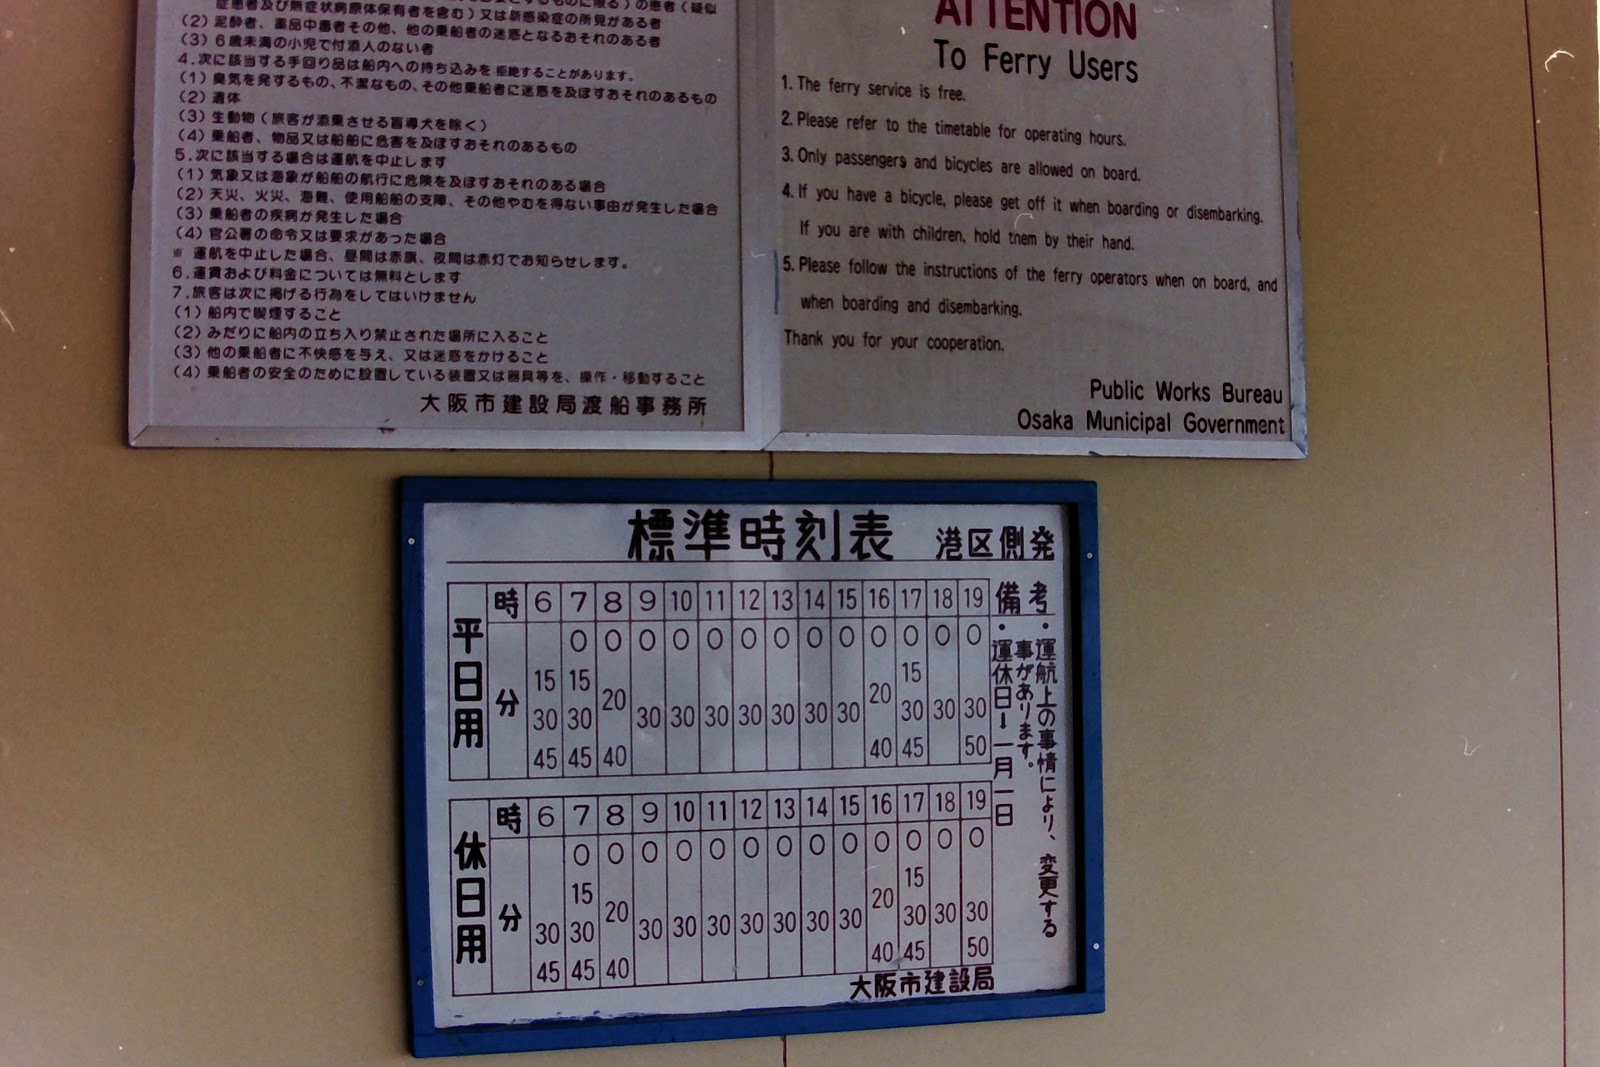 症患者及び無症状病原体保有者を含む）又は新感染症の所見がある者
（2）泥酔者、薬品中毒者その他、他の乗船者の迷惑となるおそれのある者
（3）6歳未満の小児で付添人のない者
4.次に該当する手回り品は船内への持ち込みを拒絶することがあります。
（1）臭気を発するもの、不潔なもの、その他乗船者に迷惑を及ぼすおそれのあるもの
（2）遺体
（3）生動物（旅客が添乗させる盲導犬を除く）
（4）乗船者、物品又は船舶に危害を及ぼすおそれのあるもの
5.次に該当する場合は運航を中止します
（1）気象又は海象が船舶の航行に危険を及ぼすおそれのある場合
（2）天災、火災、海難、使用船舶の支障、その他やむを得ない事由が発生した場合
（3）乗船者の疾病が発生した場合
（4）官公署の命令又は要求があった場合
※ 運航を中止した場合、昼間は赤旗、夜間は赤灯でお知らせします。
6.運賃および料金については無料とします
7.旅客は次に掲げる行為をしてはいけません
（1）船内で喫煙すること
（2）みだりに船内の立ち入り禁止された場所に入ること
（3）他の乗船者に不快感を与え、又は迷惑をかけること
（4）乗船者の安全のために設置している装置又は器具等を、操作・移動すること
大阪市建設局渡船事務所
ATTENTION
To Ferry Users
1. The ferry service is free.
2. Please refer to the timetable for operating hours.
3. Only passengers and bicycles are allowed on board.
4. If you have a bicycle, please get off it when boarding or disembarking.
If you are with children, hold them by their hand.
5. Please follow the instructions of the ferry operators when on board, and
when boarding and disembarking.
Thank you for your cooperation.
Public Works Bureau
Osaka Municipal Government
標準時刻表 港区側発
平日用
時 6 7 8 9 10 11 12 13 14 15 16 17 18 19
分
0 0 0 0 0 0 0 0 0 0 0 0 0
15 15 20 20 15
30 30 30 30 30 30 30 30 30 30 30 30
45 45 40 40 45 50
休日用
時 6 7 8 9 10 11 12 13 14 15 16 17 18 19
分
0 0 0 0 0 0 0 0 0 0 0 0 0
15 20 20 15
30 30 30 30 30 30 30 30 30 30 30 30
45 45 40 40 45 50
備考
・運航上の事情により、変更する
事があります。
・運休日ー一月一日
大阪市建設局